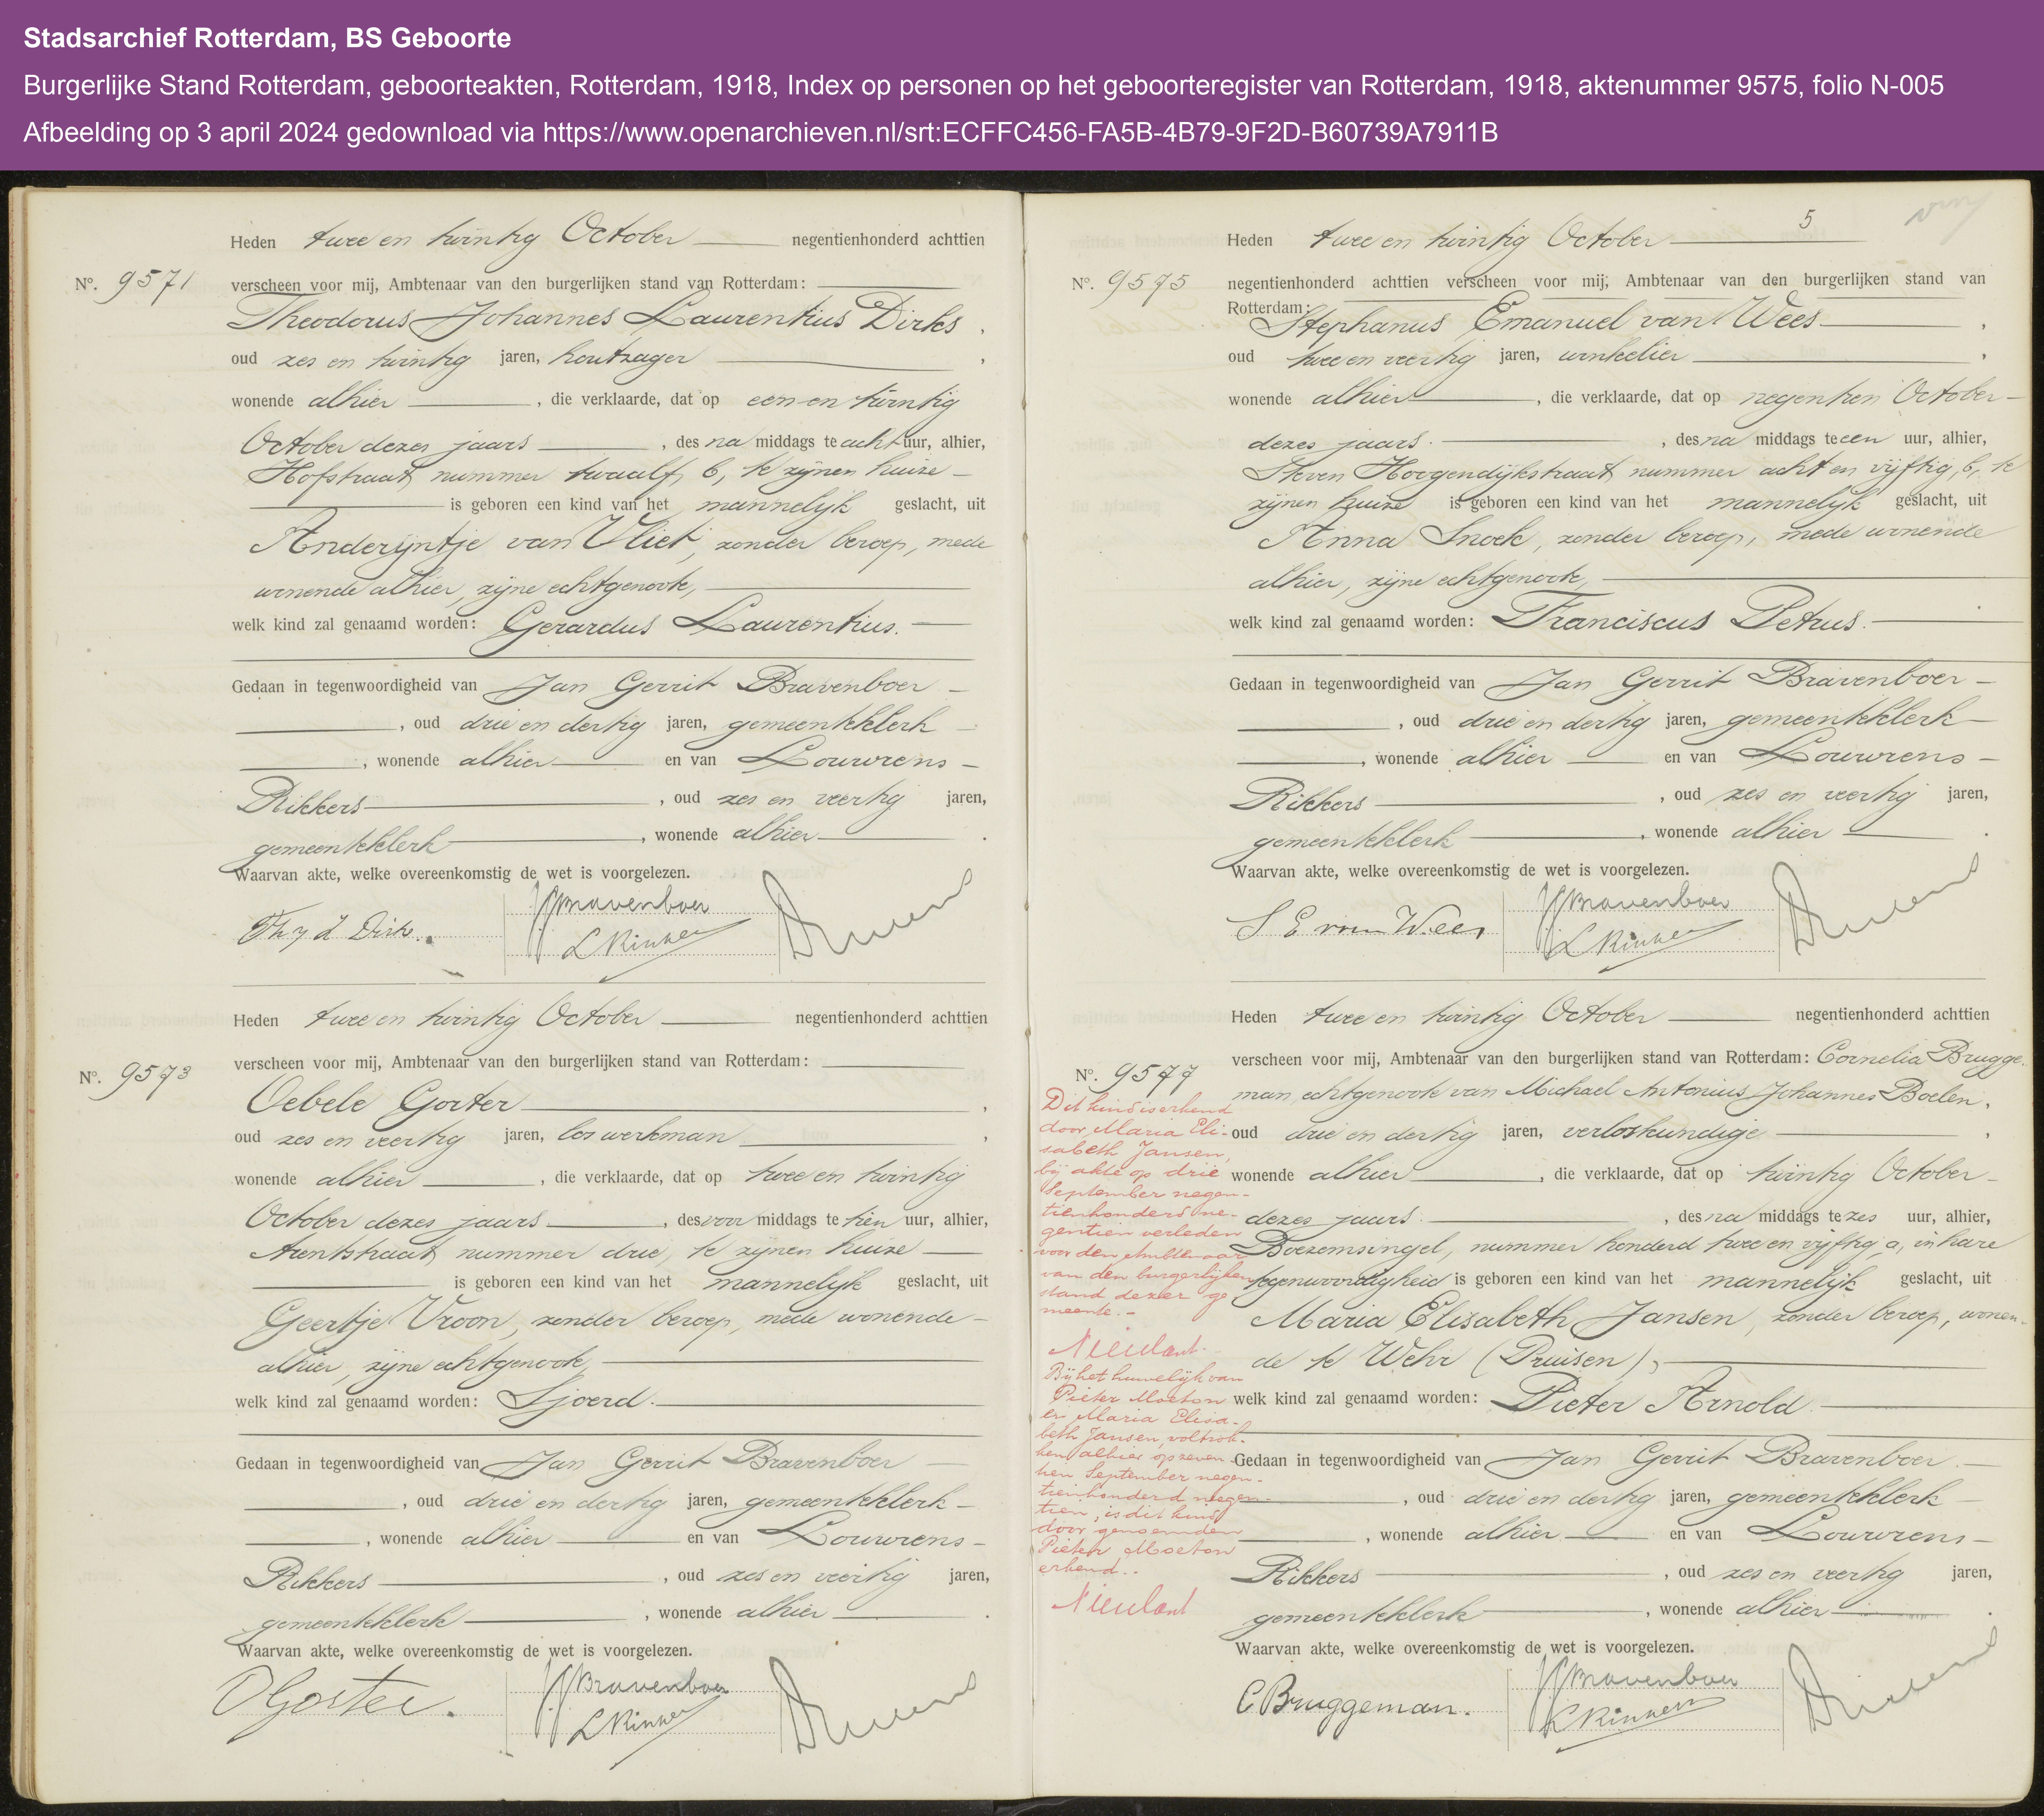 Stadsarchief Rotterdam, BS Geboorte
Burgerlijke Stand Rotterdam, geboorteakten, Rotterdam, 1918, Index op personen op het geboorteregister van Rotterdam, 1918, aktenummer 9575, folio N-005
Afbeelding op 3 april 2024 gedownload via https://www.openarchieven.nl/srt:ECFFC456-FA5B-4B79-9F2D-B60739A7911B
Heden twee en twintig October negentienhonderd achttien
No. 9571 verscheen voor mij, Ambtenaar van den burgerlijken stand van Rotterdam:
Theodorus Johannes Laurentius Dirks,
oud zes en twintig jaren, houtzager,
wonende alhier, die verklaarde, dat op een en twintig
October dezes jaars, des na middags te acht uur, alhier,
Hofstraat nummer twaalf b, te zijnen huize
is geboren een kind van het mannelijk geslacht, uit
Anderijntje van Vliet, zonder beroep, mede
wonende alhier, zijne echtgenoote,
welk kind zal genaamd worden: Gerardus Laurentius.
Gedaan in tegenwoordigheid van Jan Gerrit Bravenboer
, oud drie en dertig jaren, gemeenteklerk
, wonende alhier en van Louwrens
Rikkers, oud zes en veertig jaren,
gemeenteklerk, wonende alhier.
Waarvan akte, welke overeenkomstig de wet is voorgelezen.
Th J L Dirks. JGBravenboer
L Rikkers
Heden twee en twintig October negentienhonderd achttien
No. 9573 verscheen voor mij, Ambtenaar van den burgerlijken stand van Rotterdam:
Oebele Gorter,
oud zes en veertig jaren, los werkman,
wonende alhier, die verklaarde, dat op twee en twintig
October dezes jaars, des voor middags te tien uur, alhier,
Arentstraat nummer drie, te zijnen huize
is geboren een kind van het mannelijk geslacht, uit
Geertje Vroon, zonder beroep, mede wonende
alhier, zijne echtgenoote,
welk kind zal genaamd worden: Sjoerd.
Gedaan in tegenwoordigheid van Jan Gerrit Bravenboer
, oud drie en dertig jaren, gemeenteklerk
, wonende alhier en van Louwrens
Rikkers, oud zes en veertig jaren,
gemeenteklerk, wonende alhier.
Waarvan akte, welke overeenkomstig de wet is voorgelezen.
OGorter. JGBravenboer
L Rikkers
5
Heden twee en twintig October
No. 9575 negentienhonderd achttien verscheen voor mij, Ambtenaar van den burgerlijken stand van
Rotterdam: Stephanus Emanuel van Wees,
oud twee en veertig jaren, winkelier,
wonende alhier, die verklaarde, dat op negentien October
dezes jaars, des na middags te een uur, alhier,
Steven Hoogendijkstraat nummer acht en vijftig, b, te
zijnen huize is geboren een kind van het mannelijk geslacht, uit
Anna Snoek, zonder beroep, mede wonende
alhier, zijne echtgenoote,
welk kind zal genaamd worden: Franciscus Petrus.
Gedaan in tegenwoordigheid van Jan Gerrit Bravenboer
, oud drie en dertig jaren, gemeenteklerk
, wonende alhier en van Louwrens
Rikkers, oud zes en veertig jaren,
gemeenteklerk, wonende alhier.
Waarvan akte, welke overeenkomstig de wet is voorgelezen.
S E van Wees JGBravenboer
L Rikkers
Heden twee en twintig October negentienhonderd achttien
verscheen voor mij, Ambtenaar van den burgerlijken stand van Rotterdam: Cornelia Brugge
No. 9577
man, echtgenoote van Michael Antonius Johannes Boelen,
oud drie en dertig jaren, verloskundige,
wonende alhier, die verklaarde, dat op twintig October
dezes jaars, des na middags te zes uur, alhier,
Boezemsingel, nummer honderd twee en vijftig a, in hare
tegenwoordigheid is geboren een kind van het mannelijk geslacht, uit
Maria Elisabeth Jansen, zonder beroep, wonen-
de te Wehr (Pruisen),
welk kind zal genaamd worden: Pieter Arnold.
Gedaan in tegenwoordigheid van Jan Gerrit Bravenboer
, oud drie en dertig jaren, gemeenteklerk
, wonende alhier en van Louwrens
Rikkers, oud zes en veertig jaren,
gemeenteklerk, wonende alhier.
Waarvan akte, welke overeenkomstig de wet is voorgelezen.
C Bruggeman. JGBravenboer
L Rikkers
Dit kind is erkend
door Maria Eli-
sabeth Jansen,
bij akte op drie
September negen-
tienhonderd ne-
gentien verleden
voor den Ambtenaar
van den burgerlijken
stand dezer ge
meente.-
Nieulant
Bij het huwelijk van
Pieter Moeton
en Maria Elisa-
beth Jansen, voltrok-
ken alhier op zeven-
tien September negen-
tienhonderd negen-
tien, is dit kind
door genoemden
Pieter Moeton
erkend..
Nieulant